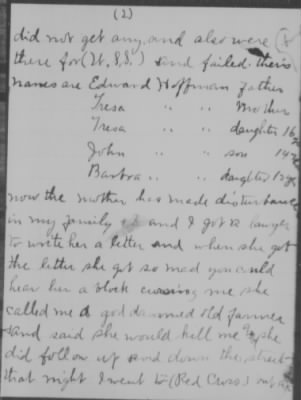 (2)
did not get any, and also were
there for (W.S.S.) and failed. theis
names are Edward Hoffman Father
Tresa " " Mother
Tresa " " daughter 16 yrs
John " " son 14 yrs
Barbra " " daughter 12 yrs
now the mother has made disturbance
in my family and I got a lawyer
to wrote her a letter and when she got
the letter she got so mad you could
hear her a block cursing me she
called me a god dammed old farmer
and said she would kill me & she
did follow up and down the street
that night I went to (Red Cross) out